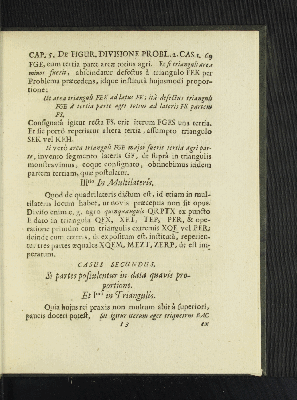 CAP. 5. DE FIGUR. DIVISIONE PROBL. 2. CAS. 1. 69
FGE, cum tertia parte areæ totius agri. Et si triangulí area
minor fuerit, abscindatur defectus à triangulo FEK per
Problema præcedens, idque instituta hujusmodi propor-
tione:
Ut area trianguli FEK ad latus FK: ità defectus trianguli
FGE à tertia parte agri totius ad lateris FK partem
FS.
Consignata igitur recta ES, erit iterum FGES una tertia.
Et sic porrò reperietur altera tertia, assumpto triangulo
SEK vel KEH.
Si verò area trianguli FGE major fuerit tertia agri par-
te, invento segmento lateris GF, de suprà in triangulis
monstravimus, eoque consignato, obtinebimus itidem
partem tertiam, quæ postulatur.
III^tio In Multilateris.
Quod de quadrilateris dictum est, id etiam in mul-
tilateris locum habet, ut novis præceptis non sit opus.
Divido enim e. g. agro quinquangulo QRPTX ex puncto
E dato in triangula QEX, XET, TEP, PER, & ope-
ratione primùm cum triangulis extremis XQE vel PER;
deinde cum cæteris, ut expositum est, instituta, reperien-
tur tres partes æquales XQEM, MEZT, ZERP, ut est im-
perarum.
CASUS SECUNDUS,
Si partes postulentur in data quavis pro-
portione.
Et I^mo in Triangulis.
Quia hujus rei praxis non multum abit à superiori,
paucis doceri potest. Sit igitur iterum ager triquetrus BAC
I 3
ex